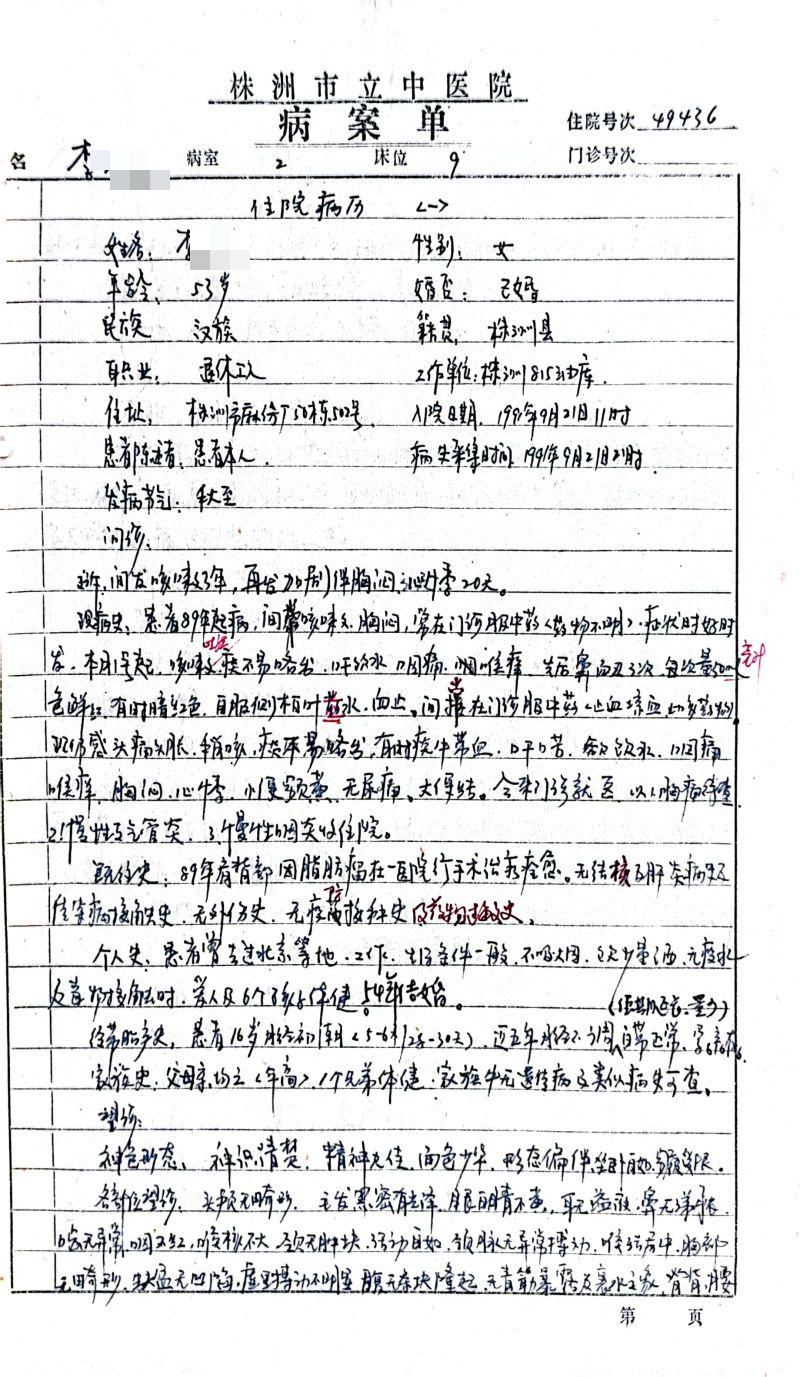 株洲市立中医院
病案单
住院号次 49436
名 李 病室 2 床位 9 门诊号次
住院病历 <一>
姓名: 李 性别: 女
年龄: 53岁 婚否: 已婚
民族 汉族 籍贯, 株洲县
职业: 退休工人 工作单位:株洲815油库.
住址: 株洲市麻纺厂50栋502号. 入院日期. 1991年9月21日11时
患者陈述者:患者本人. 病史采集时间 1991年9月21日21时.
发病节气: 秋
问诊:
主诉:间发咳嗽3年,再发加剧伴胸闷心悸20天。
现病史:患者89年起病,间常咳嗽、胸闷,常在门诊服中药<药物不明>.症状时好时
发.本月1号起,咳嗽 痰不易咯出.口干欲水 口咽痛.咽喉痒. 先后鼻血3次 每次量50ml
色鲜红 有时暗红色.自服侧柏叶煎水.血止。间常在门诊服中药
感头痛头胀.稍咳,痰不易咯出,有时痰中带血.口干口苦.欲饮水.口咽痛
喉痒.胸闷.心悸.小便黄.无尿痛。大便结。今来门诊就医 以1.胸痛待查
2.慢性支气管炎.3.慢性咽炎收住院。
既往史:89年肩背部因脂肪瘤在一医院行手术治疗痊愈。无结核及肝炎病史及
传染病接触史.无外伤史.无 防疫接种史及药物过敏史。
个人史:患者曾去过北京等地.工作.生活条件一般.不吸烟.饮少量酒.无疫水
及毒物接触史.爱人及6个孩子体健.54年结婚。
经带胎产史,患者16岁月经初潮<5-6天/28-30天).近五年月经不调 白带正常.
家族史:父母亲均亡<年高>.1个兄弟体健.家族中无遗传病及类似病史可查。
望诊:
神色形态: 神识清楚.精神欠佳.面色少华.形态偏胖
各部位望诊:头颅无畸形.毛发黑密有光泽.眼目睛不黄.耳无溢液.鼻无
齿无异常.咽不红,喉核不大.颈无肿块.活动自如.颈脉无异常搏动.喉结居中.胸部
无畸形.缺盆无凹陷.虚里搏动不明显.腹无 块隆起.无青筋暴露及 水之象.脊背.腰
第 页